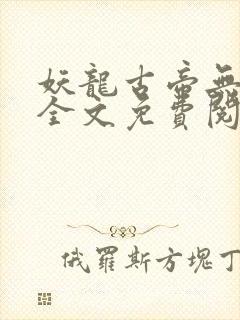 妖龍古帝無
全文免費閱
俄羅斯方塊丁